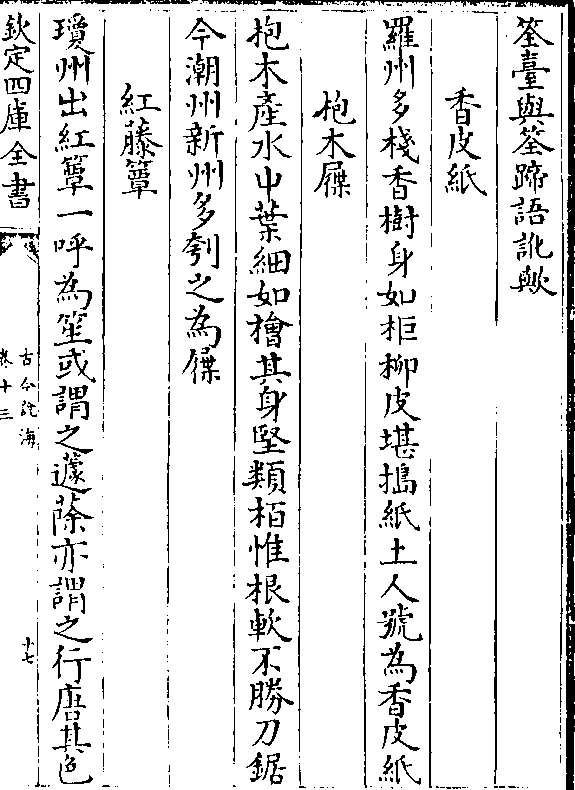 筌臺與筌蹄語訛歟
香皮紙
羅州多棧香樹身如柜柳皮堪搗紙土人號為香皮紙
枹木屧
抱木產水中葉細如檜其身堅類栢惟根軟不勝刀鋸
今潮州新州多刳之為屧
紅藤簟
瓊州出紅簟一呼為笙或謂之蘧蒢亦謂之行唐其色
欽定四庫全書
古今說海
卷十三
十七